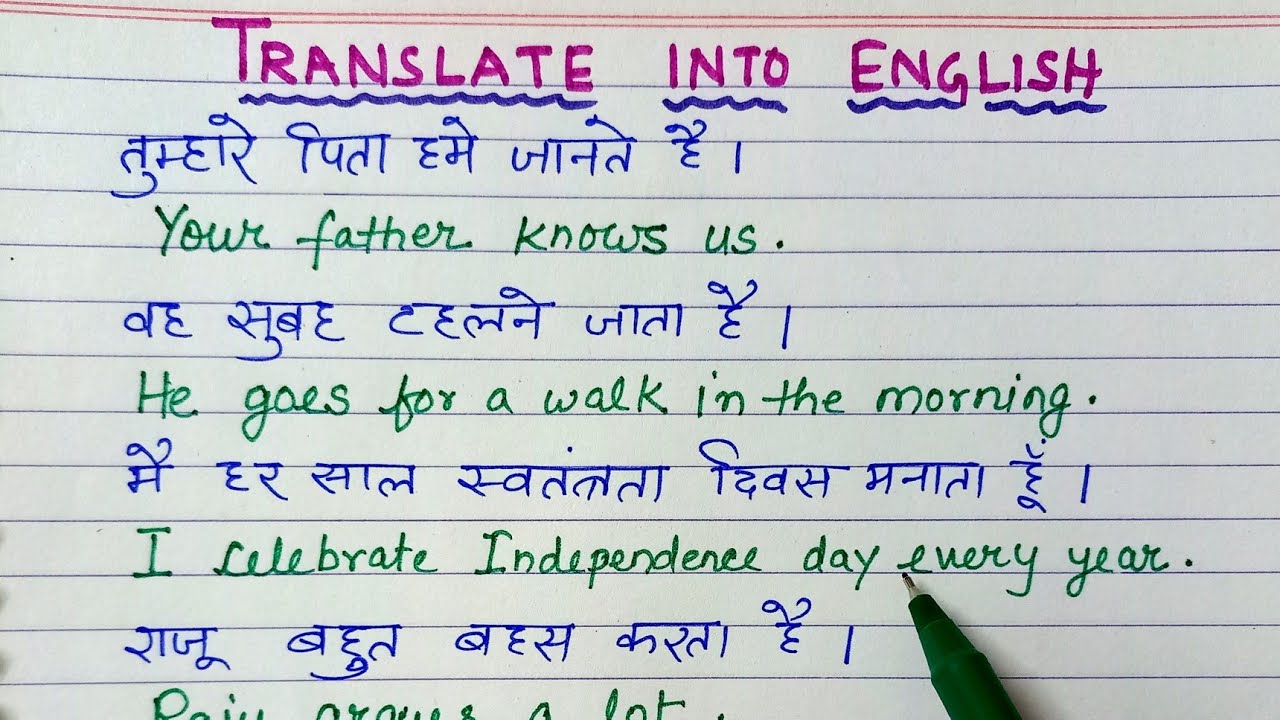 TRANSLATE INTO ENGLISH
तुम्हारे पिता हमे जानते है।
Your father knows us.
वह सुबह टहलने जाता है।
He goes for a walk in the morning.
मै हर साल स्वतंत्रता दिवस मनाता हूँ।
I celebrate Independence day every year.
राजू बहुत बहस करता है।
Raju argues a lot.